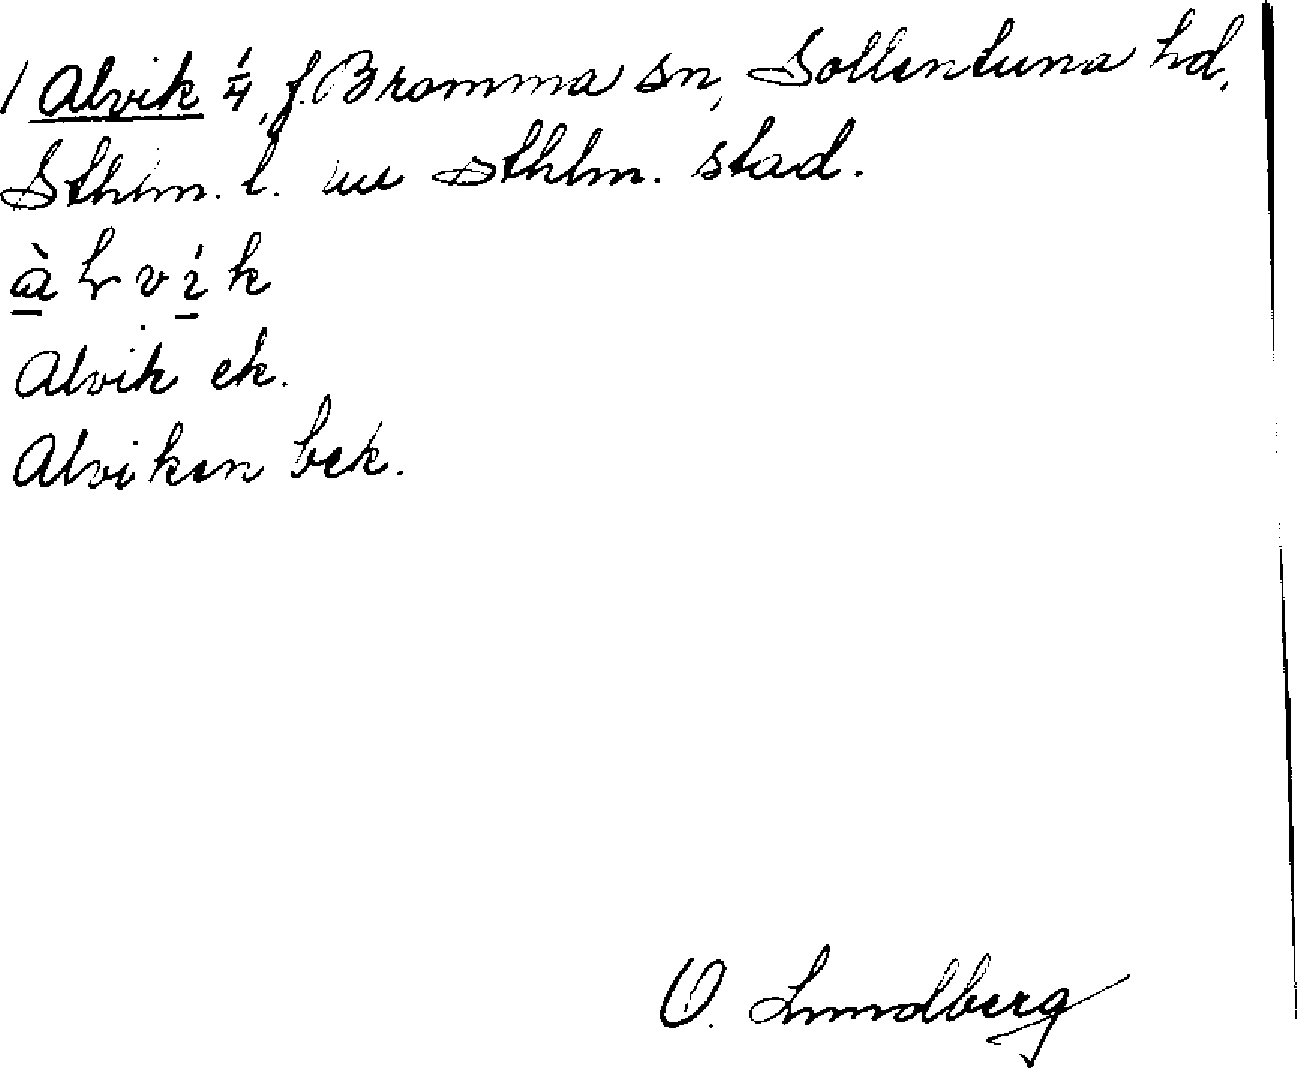 1 Alvik 1/4, f. Bromma sn, Sollentuna hd,
Sthlm. l. nu Sthlm. stad.
à l v í k
Alvik ek.
Alviken bek.
O. Lundberg